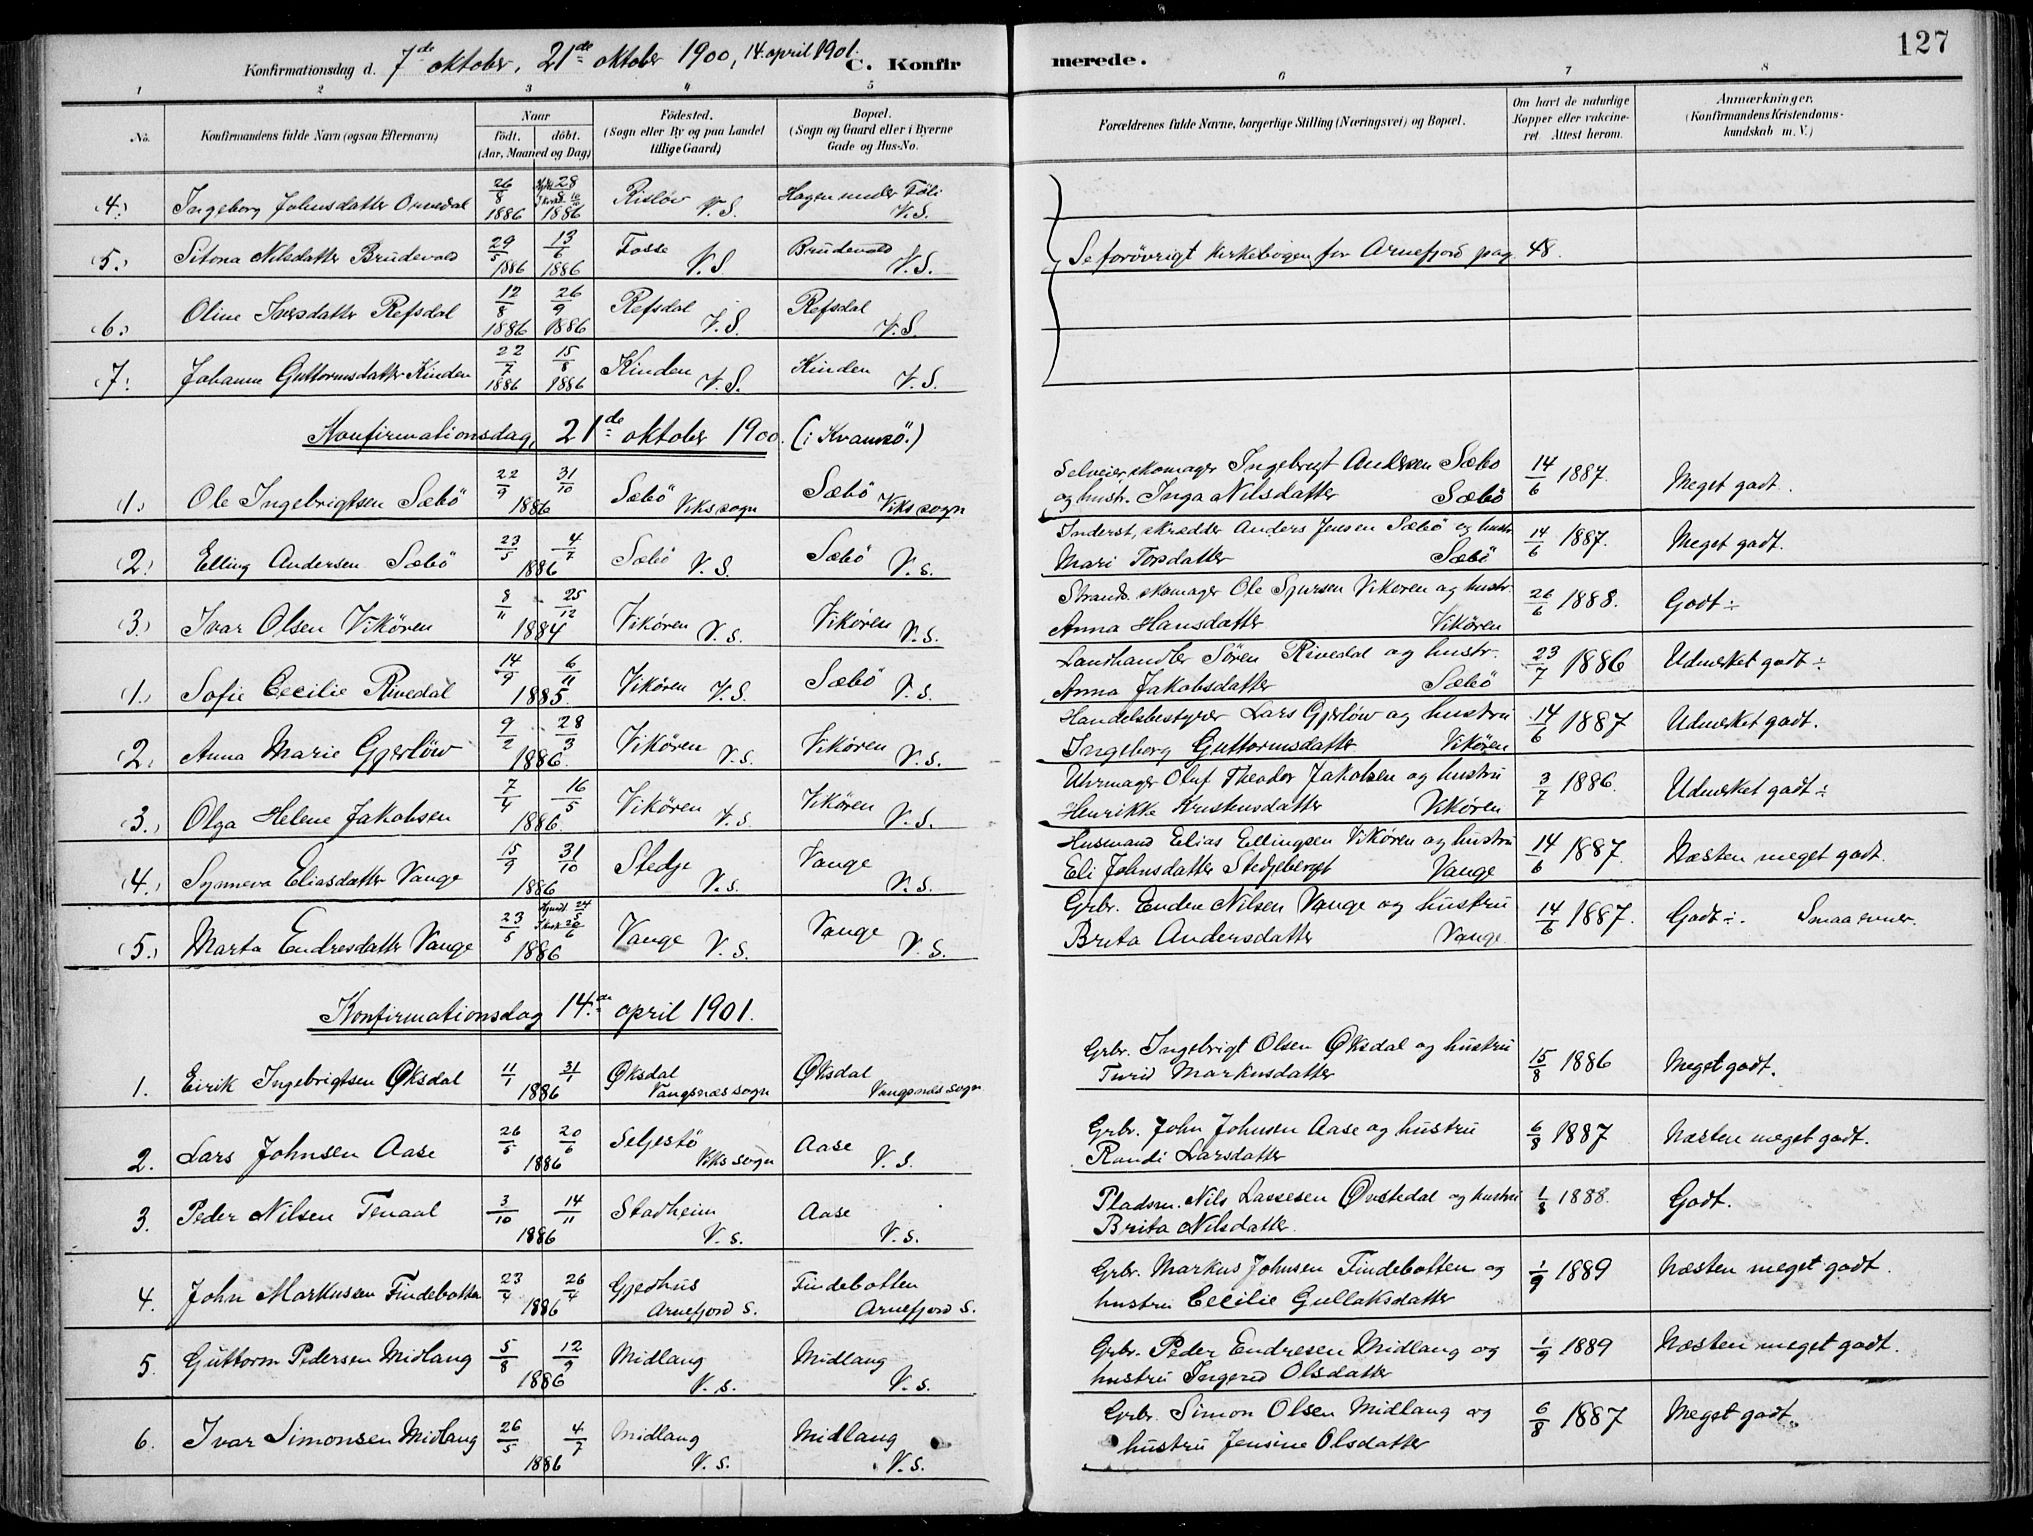 127
Konfirmationsdag d. 7de oktober, 21de oktober 1900, 14. april 1901. C. Konfirmerede.
1 2 3 4 5 6 7 8
No. Konfirmandens fulde Navn (ogsaa Efternavn) Naar født. døbt. (Aar, Maaned og Dag) Fødested. (Sogn eller By og paa Landet tillige Gaard) Bopæl. (Sogn og Gaard eller i Byerne Gade og Hus-No. Forældrenes fulde Navne, borgerlige Stilling (Næringsvei) og Bopæl. Om havt de naturlige Kopper eller vaccineret Attest herom. Anmærkninger. (Konfirmandens Kristendomskundskab m. V.)
(4.) Ingeborg Johnsdatter 26/8 1886 28/8 1886 Risløv V.S. Hagen under Føli V.S.
(5.) Sitona Nilsdatter Brudevold 29/5 1886 13/6 1886 Fosse V.S Brudevold V.S. Se forövrigt kirkebogen for Arnefjord pag. 48.
(6.) Oline Iversdatter Refsdal 12/8 1886 26/9 1886 Refsdal V.S. Refsdal V.S.
(7.) Johanne Guttormsdatter Hinden 22/7 1886 15/8 1886 Hinden V.S. Hinden V.S.
Konfirmationsdag, 21de oktober 1900. (i Kvamsö.)
(1.) Ole Ingebrigtsen Sæbö 22/9 31/10 1886 Sæbö Viks sogn Sæbö Viks sogn Selveier, skomager Ingebrigt Andersen Sæbö og hustr. Inga Nilsdatter Sæbö 14/6 1887. Meget godt.
(2.) Elling Andersen Sæbö 23/5 4/7 1886 Sæbö V.S. Sæbö V.s. Inderst, skrædder Anders Jensen Sæbö og hustr. Mari Torsdatter Sæbö 14/6 1887. Meget godt.
(3.) Ivar Olsen Vikören 8/11 25/12 1884 Vikören V.s. Vikören V.s. Strands. skomager Ole Sjursen Vikören og hustr. Anna Hansdatter Vikören 26/6 1888. Godt ÷
(1.) Sofie Cecilie Rivedal 14/9 6/11 1885. Vikören V.S. Sæbö V.s. Landhandler Sören Rivedal og hustr. Anna Jakobsdatter Sæbö 23/7 1886 Udmerket godt ÷
2. Anna Marie Gjerlöw 9/2 28/3 1886. Vikören V.s. Vikören V.s. Handelsbestyrer Lars Gjerlöw og hustru Ingeborg Guttormsdatter Vikören 14/6 1887 Udmerket godt.
(3.) Olga Helene Jakobsen 7/4 16/5 1886. Vikören V.s. Vikören V.S. Uhrmager Oluf Theodor Jakobsen og hustru Henrikke Kristensdatter Vikören 3/7 1886. Udmerket godt ÷
(4.) Synneva Eliasdatter Vange 15/9 31/10 1886 Stedje V.s. Vange V.s. Husmand Elias Ellingsen Vikören og hustru Eli Johnsdatter Stedjeberget Vange 14/6 1887. Næsten meget godt.
(5.) Marta Endresdatter Vange 23/5 1886 Vange V.S. Vange V.S. Grbr. Endre Nilsen Vange og hustru Brita Andersdatter Vange 14/6 1887. Godt ÷. Smaa evner.
Konfirmationsdag 14de april 1901.
1. Eirik Ingebrigtsen Øksdal 11/1 31/1 1886 Øksdal Vangsnæs sogn Øksdal Vangsnæs sogn Grbr. Ingebrigt Olsen Øksdal og hustru Turid Markusdatter 15/8 1886 Meget godt.
2. Lars Johnsen Aase 26/5 20/6 1886 Seljestö Viks sogn Aase V.S. Grbr. John Johnsen Aase og hustru Randi Larsdatter 6/8 1887 Næsten meget godt.
3. Peder Nilsen Tenaal 3/10 14/11 1886 Stadheim V.s. Aase V.s. Pladsm. Nils Lassesen Øvstedal og hustru Brita Nilsdatter. 1/8 1888. Godt.
4. John Markusen Findebotten 23/4 26/4 1886 Gjedhus Arnefjord S. Findebotten Arnefjord S. Grbr. Markus Johnsen Findebotten og hustru Cecilie Gullaksdatter 1/9 1889 Næsten meget godt.
5. Guttorm Pedersen Midlang 5/8 12/9 1886 Midlang V.s. Midlang V.s. Grbr. Peder Endresen Midlang og hustru Ingerid Olsdatter 1/9 1889 Næsten meget godt.
6. Ivar Simonsen Midlang 26/5 4/7 1886 Midlang V.s. Midlang V.s. Grbr. Simon Olsen Midlang og hustru Jensine Olsdatter 6/8 1887 Meget godt.